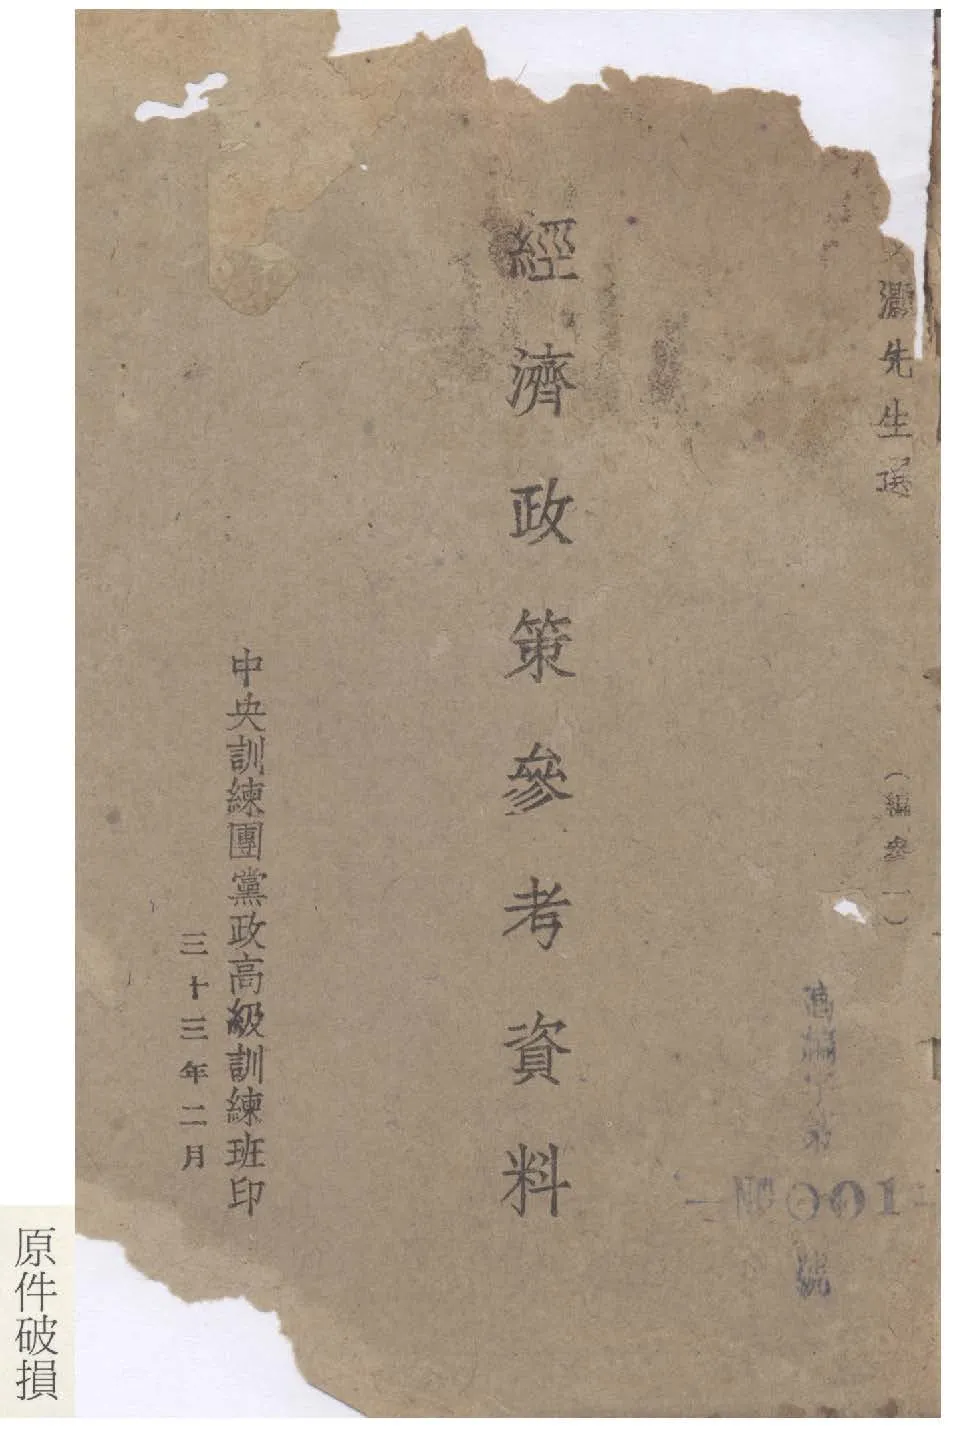 灝先生選
(編參一)
高編字第
No 001
號
經濟政策參考資料
中央訓練團黨政高級訓練班印
三十三年二月
原件破損